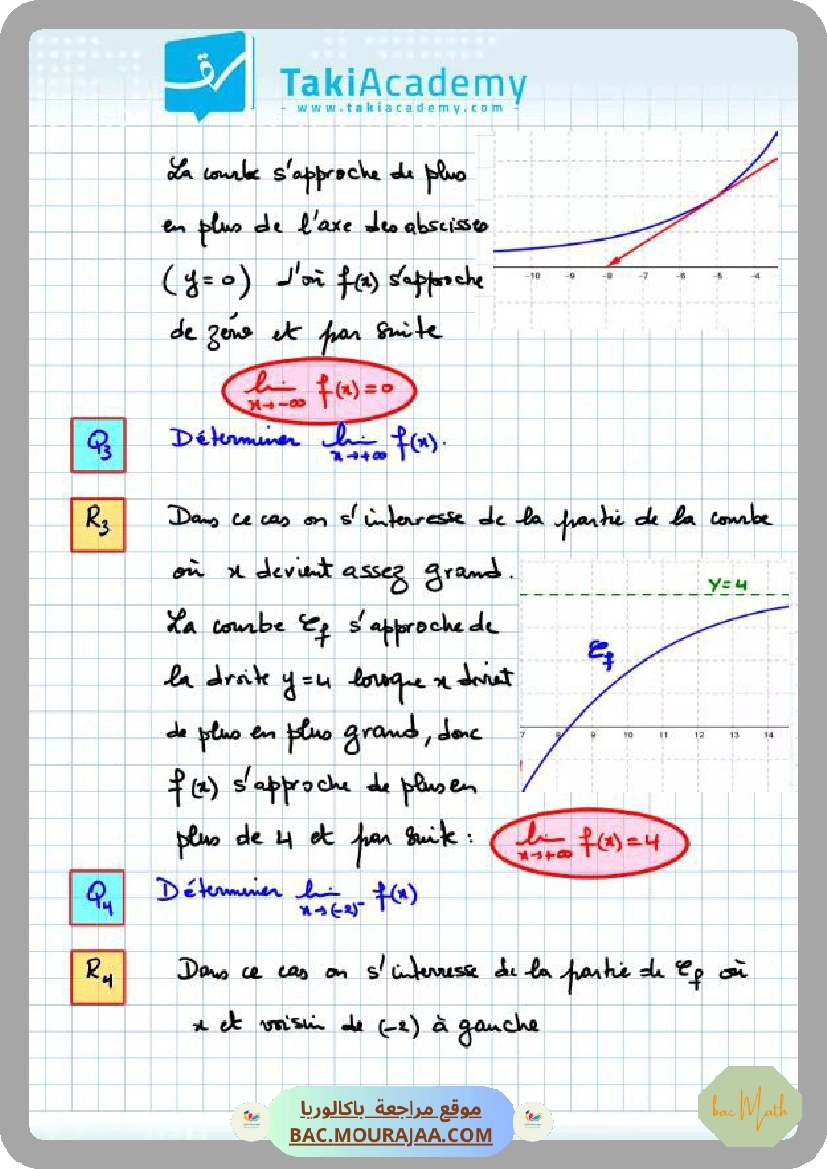 TakiAcademy
- www.takiacademy.com -
La courbe s'approche de plus
en plus de l'axe des abscisses
(y=0) d'où f(x) s'approche
de zéro et par suite
-10 -9 -8 -7 -6 -5 -4
lim f(x)=0
x→-∞
Q3 Déterminer lim f(x).
x→+∞
R3 Dans ce cas on s'interresse de la partie de la courbe
où x devient assez grand.
y=4
La courbe ℭf s'approche de
ℭf
la droite y=4 lorsque x devient
de plus en plus grand, donc
7 8 9 10 11 12 13 14
f(x) s'approche de plus en
plus de 4 et par suite : lim f(x)=4
x→+∞
Q4 Déterminer lim f(x)
x→(-2)⁻
R4 Dans ce cas on s'interresse de la partie de ℭf où
x et voisin de (-2) à gauche
موقع مراجعة باكالوريا
BAC.MOURAJAA.COM
bac Math